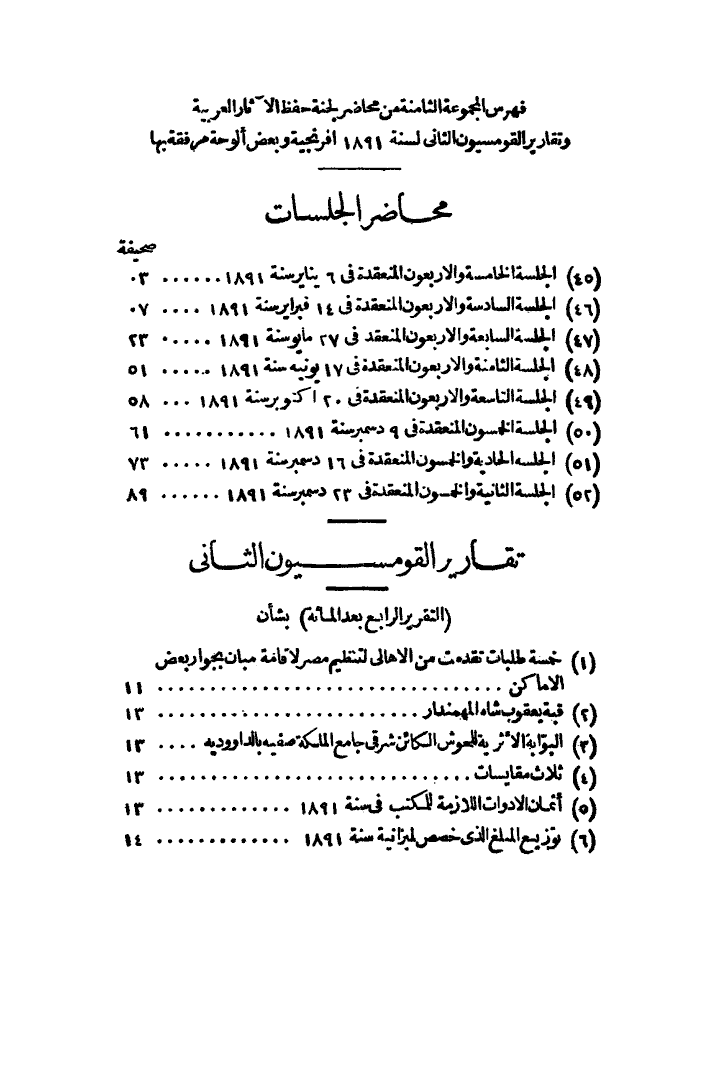 فهرس المجموعة الثامنة من محاضر لجنة حفظ الآثار العربية
وتقارير القومسيون الثانى لسنة ١٨٩١ افرنجية وبعض ألوحة مرفقة بها
محاضر الجلسات
صحيفة
(٤٥) الجلسة الخامسة والاربعون المنعقدة فى ٦ يناير سنة ١٨٩١ ...... ٠٣
(٤٦) الجلسة السادسة والاربعون المنعقدة فى ١٤ فبراير سنة ١٨٩١ .... ٠٧
(٤٧) الجلسة السابعة والاربعون المنعقد فى ٢٧ مايو سنة ١٨٩١ ..... ٢٣
(٤٨) الجلسة الثامنة والاربعون المنعقدة فى ١٧ يونيه سنة ١٨٩١ ..... ٥١
(٤٩) الجلسة التاسعة والاربعون المنعقدة فى ٢٠ اكتوبر سنة ١٨٩١ ... ٥٨
(٥٠) الجلسة الخمسون المنعقدة فى ٩ دسمبر سنة ١٨٩١ ........... ٦١
(٥١) الجلسه الحادية والخمسون المنعقدة فى ١٦ دسمبر سنة ١٨٩١ ..... ٧٣
(٥٢) الجلسة الثانية والخمسون المنعقدة فى ٢٣ دسمبر سنة ١٨٩١ ...... ٨٩
تقارير القومسيون الثانى
(التقرير الرابع بعد المائة) بشأن
(١) خمسة طلبات تقدمت من الاهالى لتنظيم مصر لاقامة مبان بجوار بعض
الاماكن ................................ ١١
(٢) قبة يعقوب شاه المهمندار ........................ ١٣
(٣) البوابة الأثرية للحوش الكائن شرقى جامع الملكة صفيه بالداووديه .... ١٣
(٤) ثلاث مقايسات ............................. ١٣
(٥) أثمان الادوات اللازمة للمكتب فى سنة ١٨٩١ ............. ١٣
(٦) توزيع المبلغ الذى خصص لميزانية سنة ١٨٩١ ............. ١٤